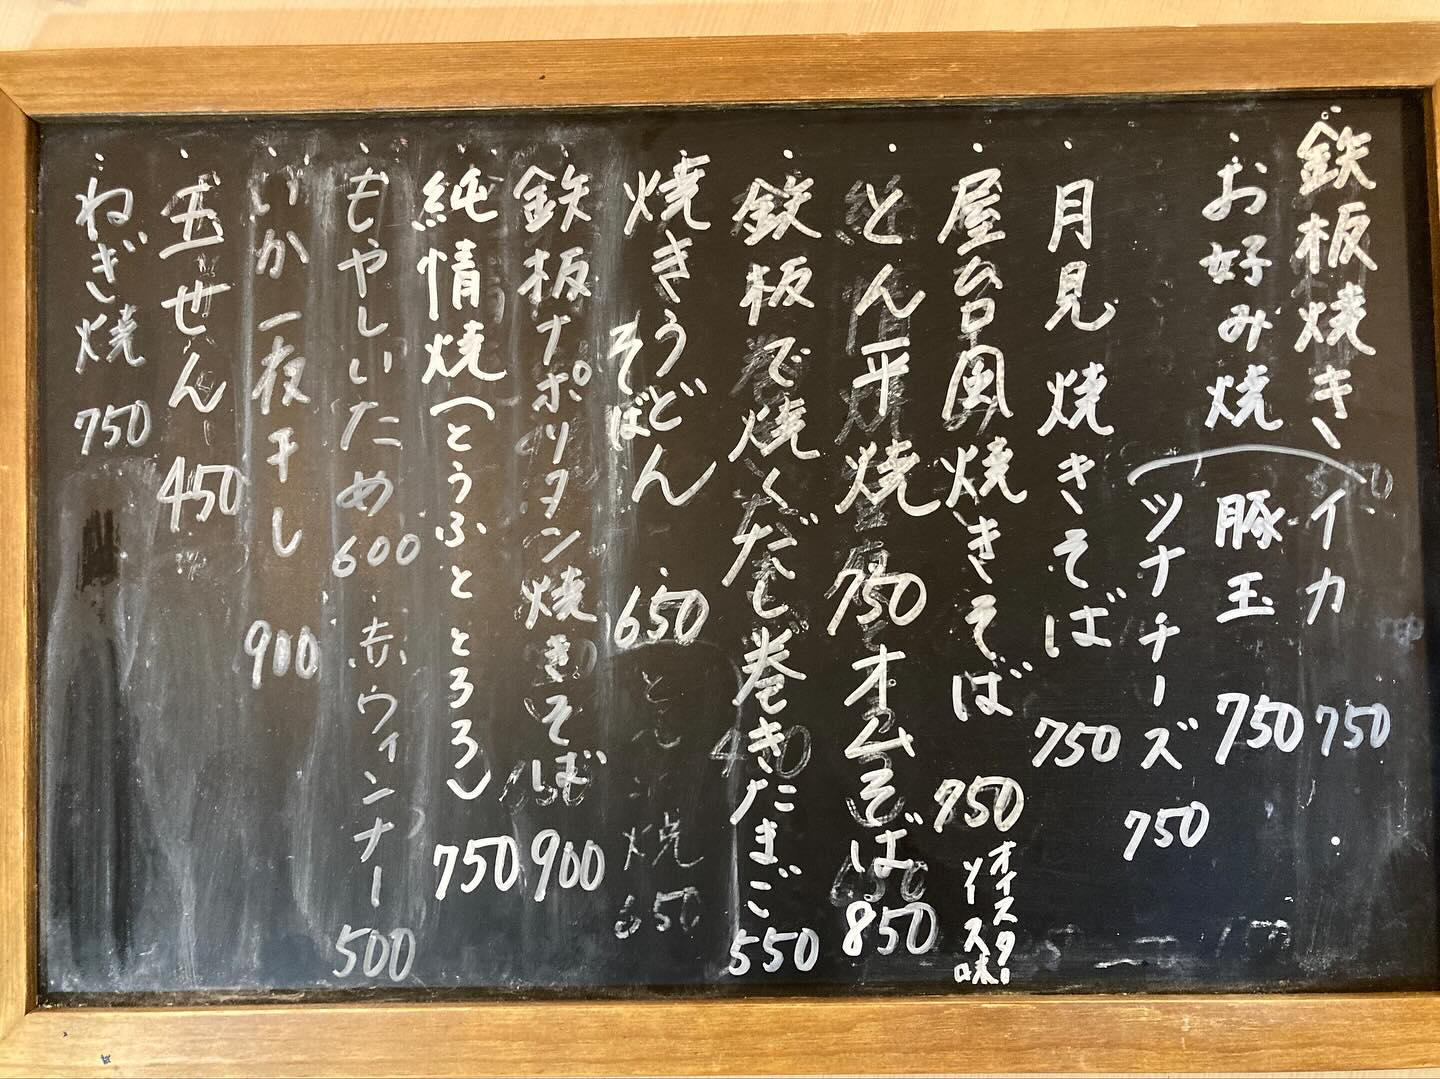 ・鉄板焼き、イカ 750
・お好み焼(豚玉 750
ツナチーズ 750
・月見焼きそば 750
・屋台風焼きそば 750 オイスターソース味
・とん平焼 750 オムそば 850
・鉄板で焼くだし巻きたまご 550
・焼きうどん そば 650
・鉄板ナポリタン焼きそば 900
・純情焼(とうふととろろ) 750
・もやしいため 600 ・赤ウィンナー 500
・いか一夜干し 900
・玉せん 450
・ねぎ焼 750